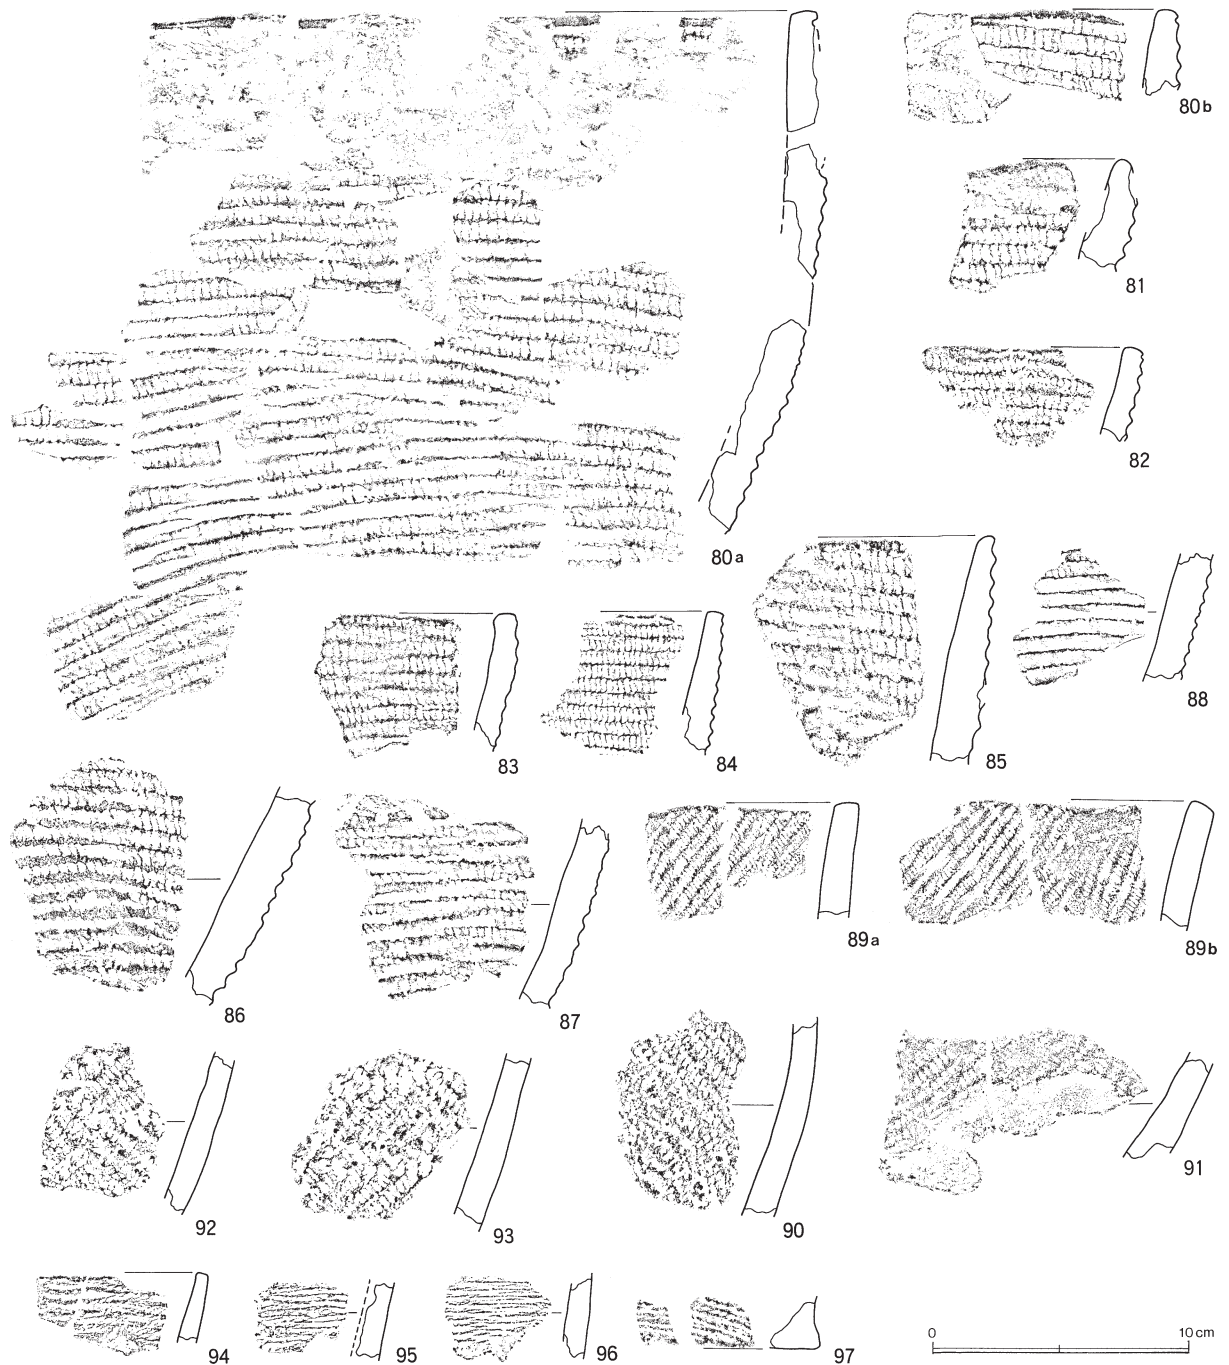 80b
81
82
80a
83
84
85
88
86
87
89a
89b
92
93
90
91
94
95
96
97
0 10cm